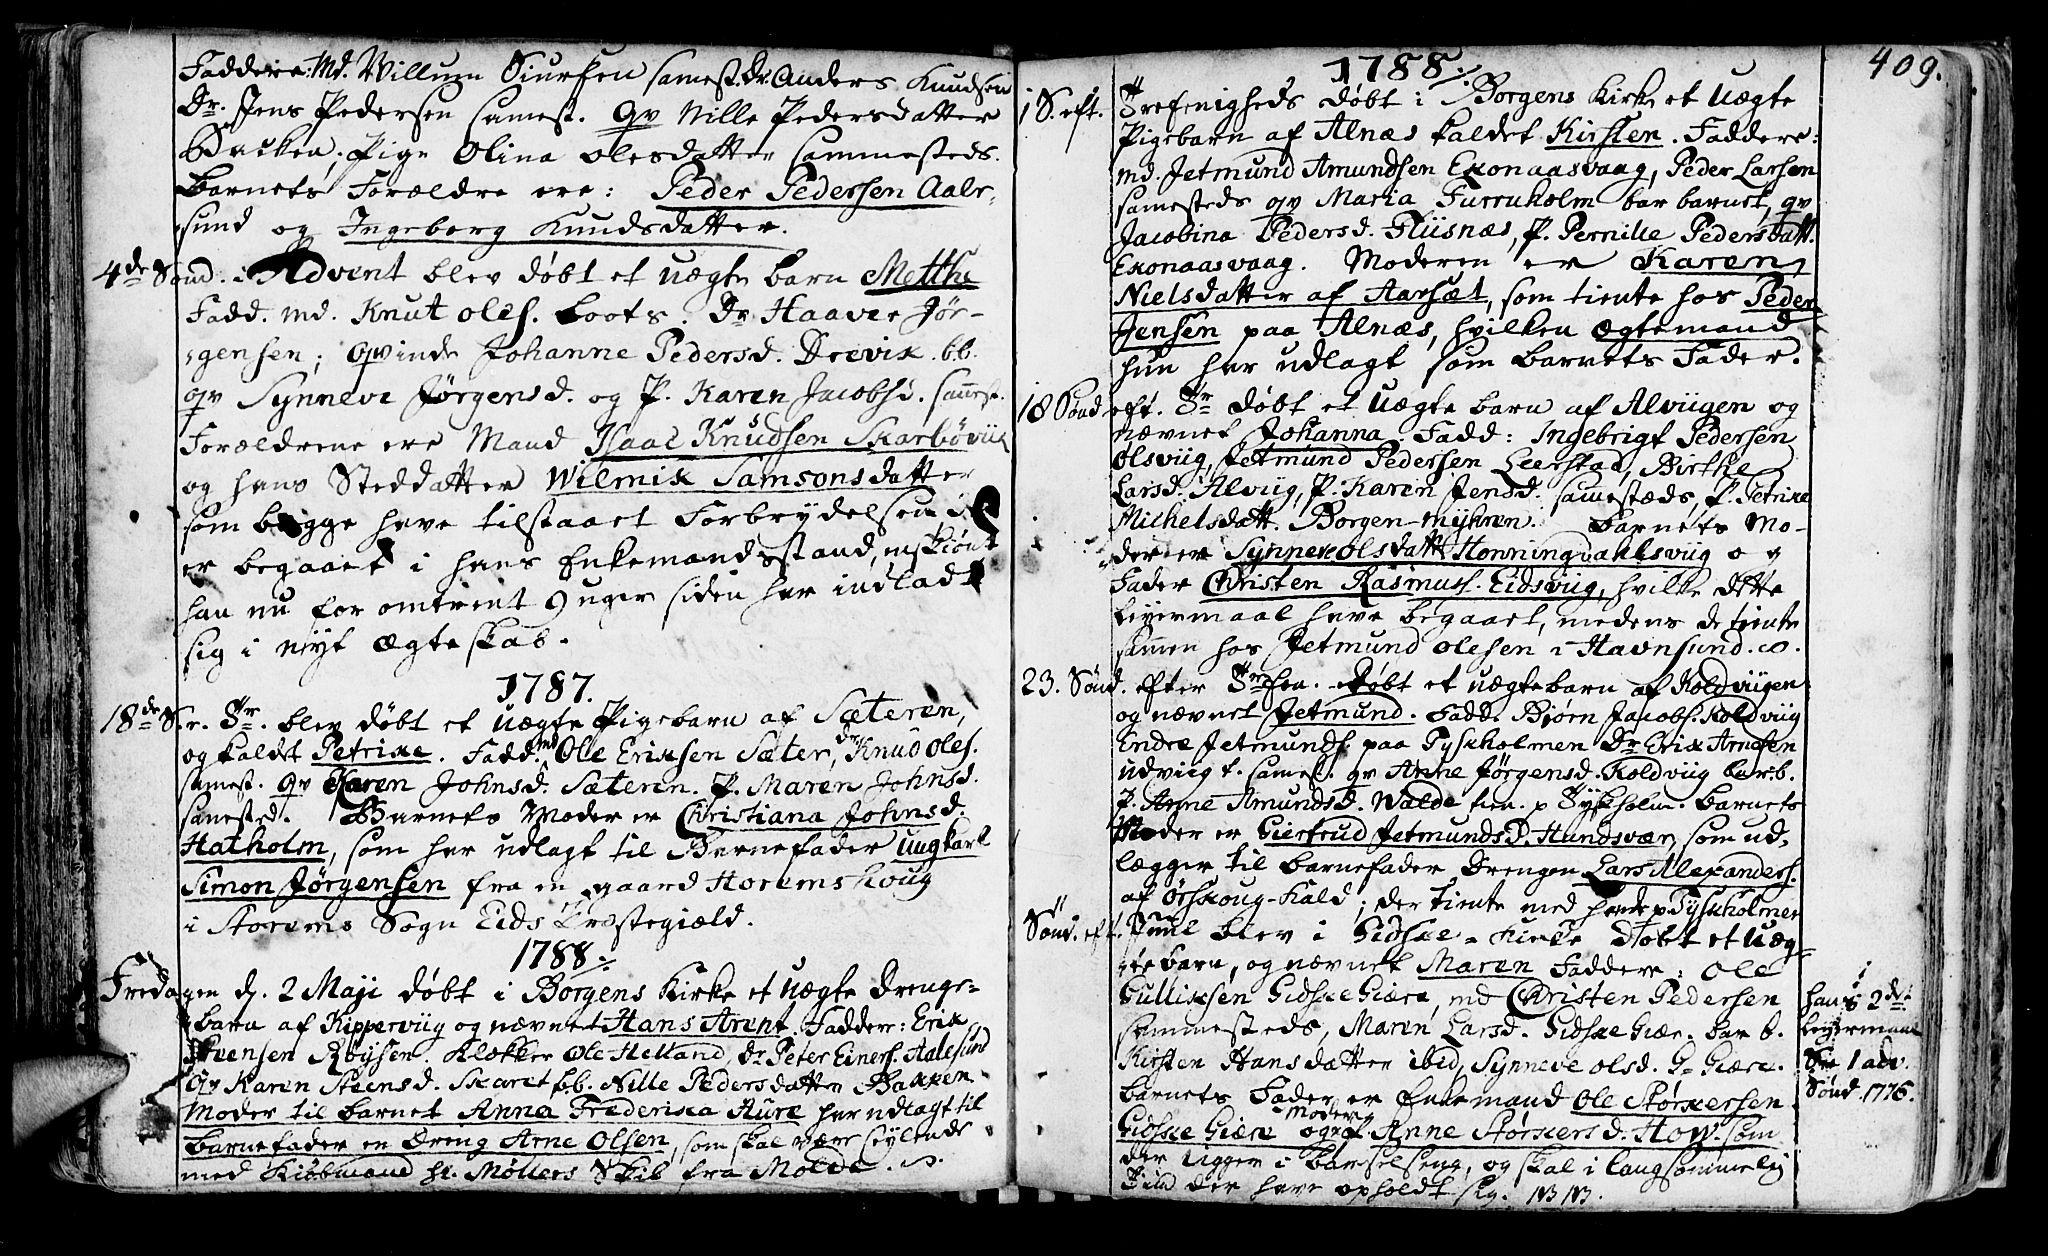 Faddere: Md. Willum Siursen samest. Dr. Anders Knudsen
Dr. Jens Pedersen samest. Qv Nille Pedersdatter
Backen, Pige Olina Olesdatter sammesteds.
Barnets Forældre ere: Peder Pedersen Aale-
sund og Ingeborg Knudsdatter.
4de Sønd. i Advent blev døbt et uægte barn Metthe
Fadd. md. Knut Oles. Boots. Dr Haaver Jør-
gensen; Qvinde Johanne Pedersd. Brevix. bb.
qv Synneve Jørgensd. og P. Karen Jacobsd. samest.
Forældrene ere Mand Isaac Knudsen Skarbøviig
og hans Steddatter Wilmix Samsonsdatter
som begge have tilstaaet Forbrydelsen
er begaaet i hans Enkemandsstand, enskiønt
han nu for omtrent 9 uger siden har indladt
sig i nyt Ægteskab.
1787.
18de S. Tr. blev døbt et uægte Pigebarn af Sæteren,
og kaldet Petrixe. Fadd. md Ole Erixsen Sæter, dr Knud Oles.
samest. Qv Karen Johnsd. Sæteren. P. Maren Johnsd.
samested. Barnets Moder er Christiana Johnsd.
Hatholm, som har udlagt til Barnefader ungkarl
Simon Jørgensen fra en gaard Horemskoug
i Storems Sogn Eids Præstegiæld.
1788.
Fredagen d. 2 Maji døbt i Borgens Kirke et uægte Drenge-
barn af Kipperviig og nævnet Hans Arent. Faddere: Erik
Svensen Røysen. Klokker Ole Helland, Dr. Peter Einers. Aalesund
Qv Karen Steensd. Skaret bb. Nille Pedersdatter Baxxen
Moder til barnet Anna Frederixa Aure har udlagt til
barnefader en Dreng Arne Olsen, som skal være seylende
med Kiøbmand Hr. Møllers Skib fra Molde.
409.
1788.
1 S. eft. Trefenigheds døbt i Borgens Kirke et uægte
Pigebarn af Alnæs kaldet Kirsten. Faddere:
md. Jetmund Amundsen Exonaasvaag, Peder Larsen
samesteds qv Maria Furruholm bar barnet, qv
Jacobina Pedersd. Fliisnæs, P. Pernille Pedersdatt.
Exonaasvaag. Moderen er Karen
Nielsdatter af Aarsæt, som tiente hos Peder
Jensen paa Alnæs, hvilken ægtemand
hun har udlagt som barnets Fader.
18 Sønd. eft. Tr døbt et uægte barn af Alviigen og
nævnet Johanna. Fadd: Ingebrigt Pedersen
Olsviig, Jetmund Pedersen Leerstad, Birthe
Larsd. Alviig, P. Karen Jensd. samestæds, P. Petrixe
Michelsdatt. Borgen-myhren. Barnets Mo-
der er Synnev Olsdatt Honningdahlsviig og
Fader Christen Rasmuss. Eidsviig, hvilke dette
leyermaal have begaaet, medens de tiente
samen hos Jetmund Olesen i Havnsund.
23. Sønd. efter Tr. døbt et uægte barn af Koldviigen
og nævnet Jetmund. Fadd. Bjørn Jacobs. Koldviig
Endre Jetmunds. paa Tyskholmen Dr Erix Arnesen
udviig t. samest. qv Anne Jørgensd. Koldviig bar b.
P. Anne Amundsd. Walde tien. p Tyskholm. Barnets
Moder er Giertrud Jetmundsd. Hundsvær, som ud-
lægger til barnefader Drengen Lars Alexanders.
af Ørskoug-Fald; der tiente med hende p Tyskholmen
Sønd. eft. Juul blev i Gidske-Kirke døbt et uæg-
te barn, og nævnet Maren Faddere: Ole
Gullixsen Gidske Giære, md Christen Pedersen
sammesteds, Maren Larsd. Gidske Giære bar b.
Kirsten Hansdatter ibid, Synneve Olsd. G- Giære.
Barnets Fader er Enkemand Ole Størkersen
Gidske Giære og Moder Anne Størxersd. How. som
der ligger i barselseng, og skal i langsommelig
Tiid der have opholdt sig. NB NB.
hans 2det
leyermaal
See 1 adv.
Sønd. 1776.